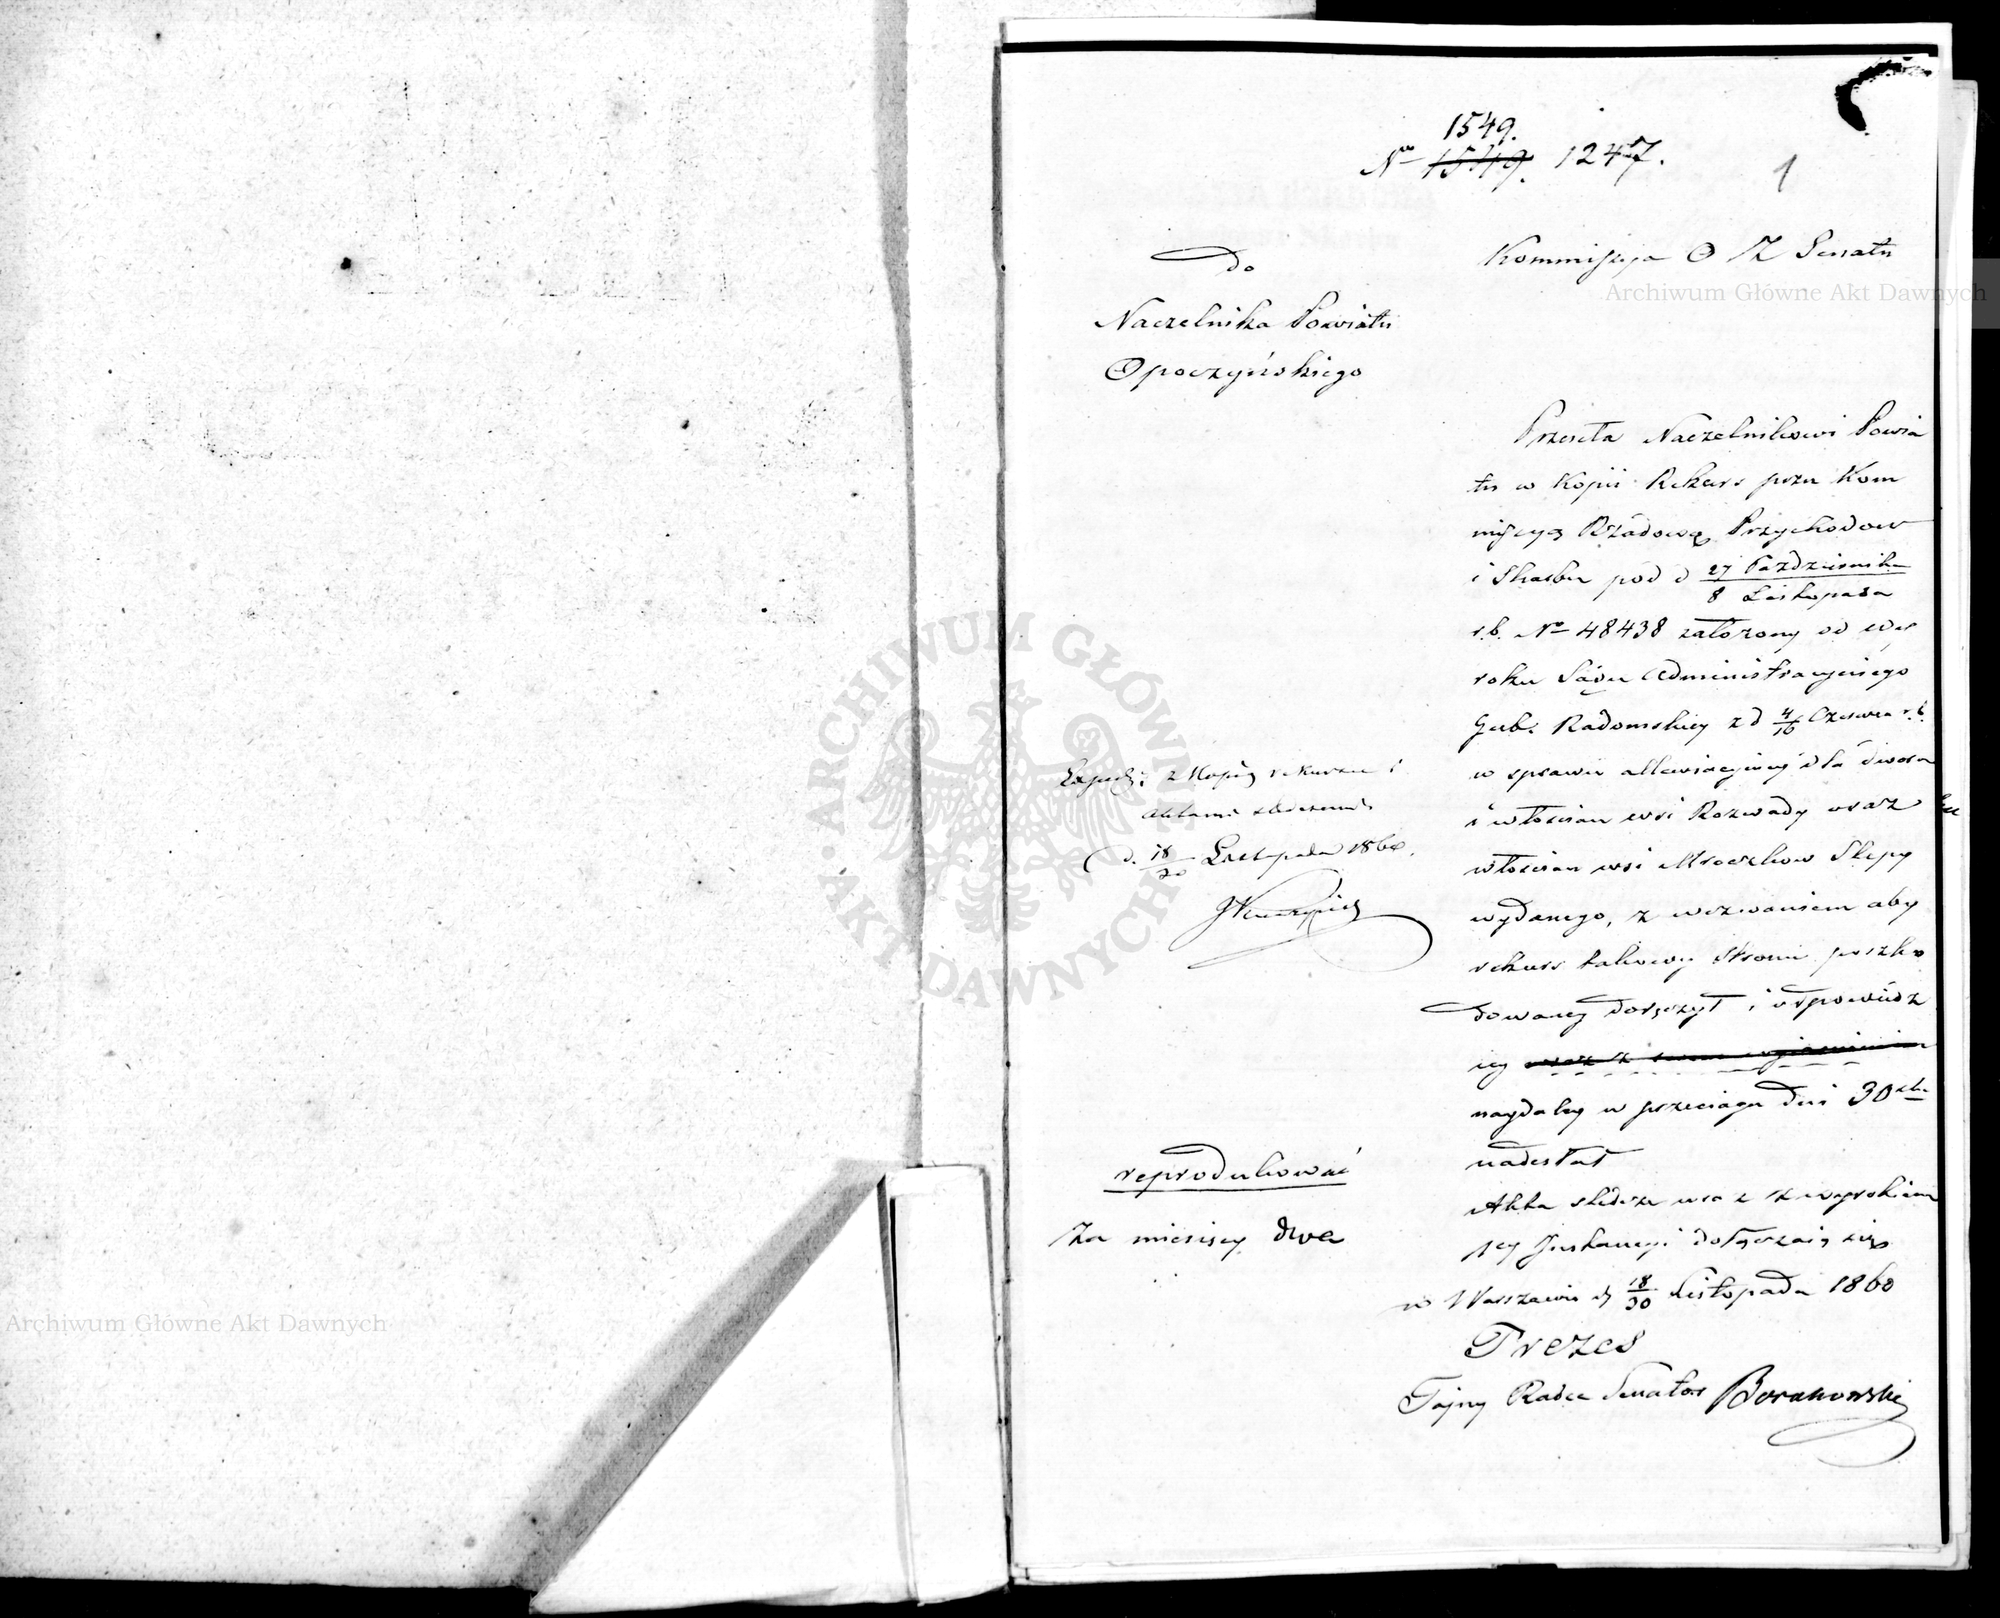 1549.
No 1549. 1247.
1
Kommissya O Z Senatu
do
Naczelnika Powiatu
Opoczyńskiego
Przeseła Naczelnikowi Powia
tu w Kopii Rekurs przez Kom
missyą Rządową Przychodow
i Skarbu pod d 27 Październik / 8 Listopada
r.b. No 48438 założony od wy
roku Sądu Administracyjnego
Gub. Radomskiey z d 4/16 Czerwca r.b.
w sprawie allewiacyiney dla dworu
i włościan wsi Rozwady oraz
włościan wsi Mroczkow Slepy
wydanego, z wezwaniem aby
rekurs takowy stronie poszko
dowaney doręczył i odpowiedz
iey
naydaley w przeciągu dni 30stu
nadesłał
Akta śledcze wraz z wyrokiem
dołączaią się
w Warszawie d 18/30 Listopada 1860
Prezes
Tajny Radca Senator
Exped: z Kopią rekursu i
aktami śledczemi
d. 18/30 Listopada 1860.
reprodukować
za miesięcy dwa
Archiwum Główne Akt Dawnych
Archiwum Główne Akt Dawnych
ARCHIWUM GŁÓWNE AKT DAWNYCH